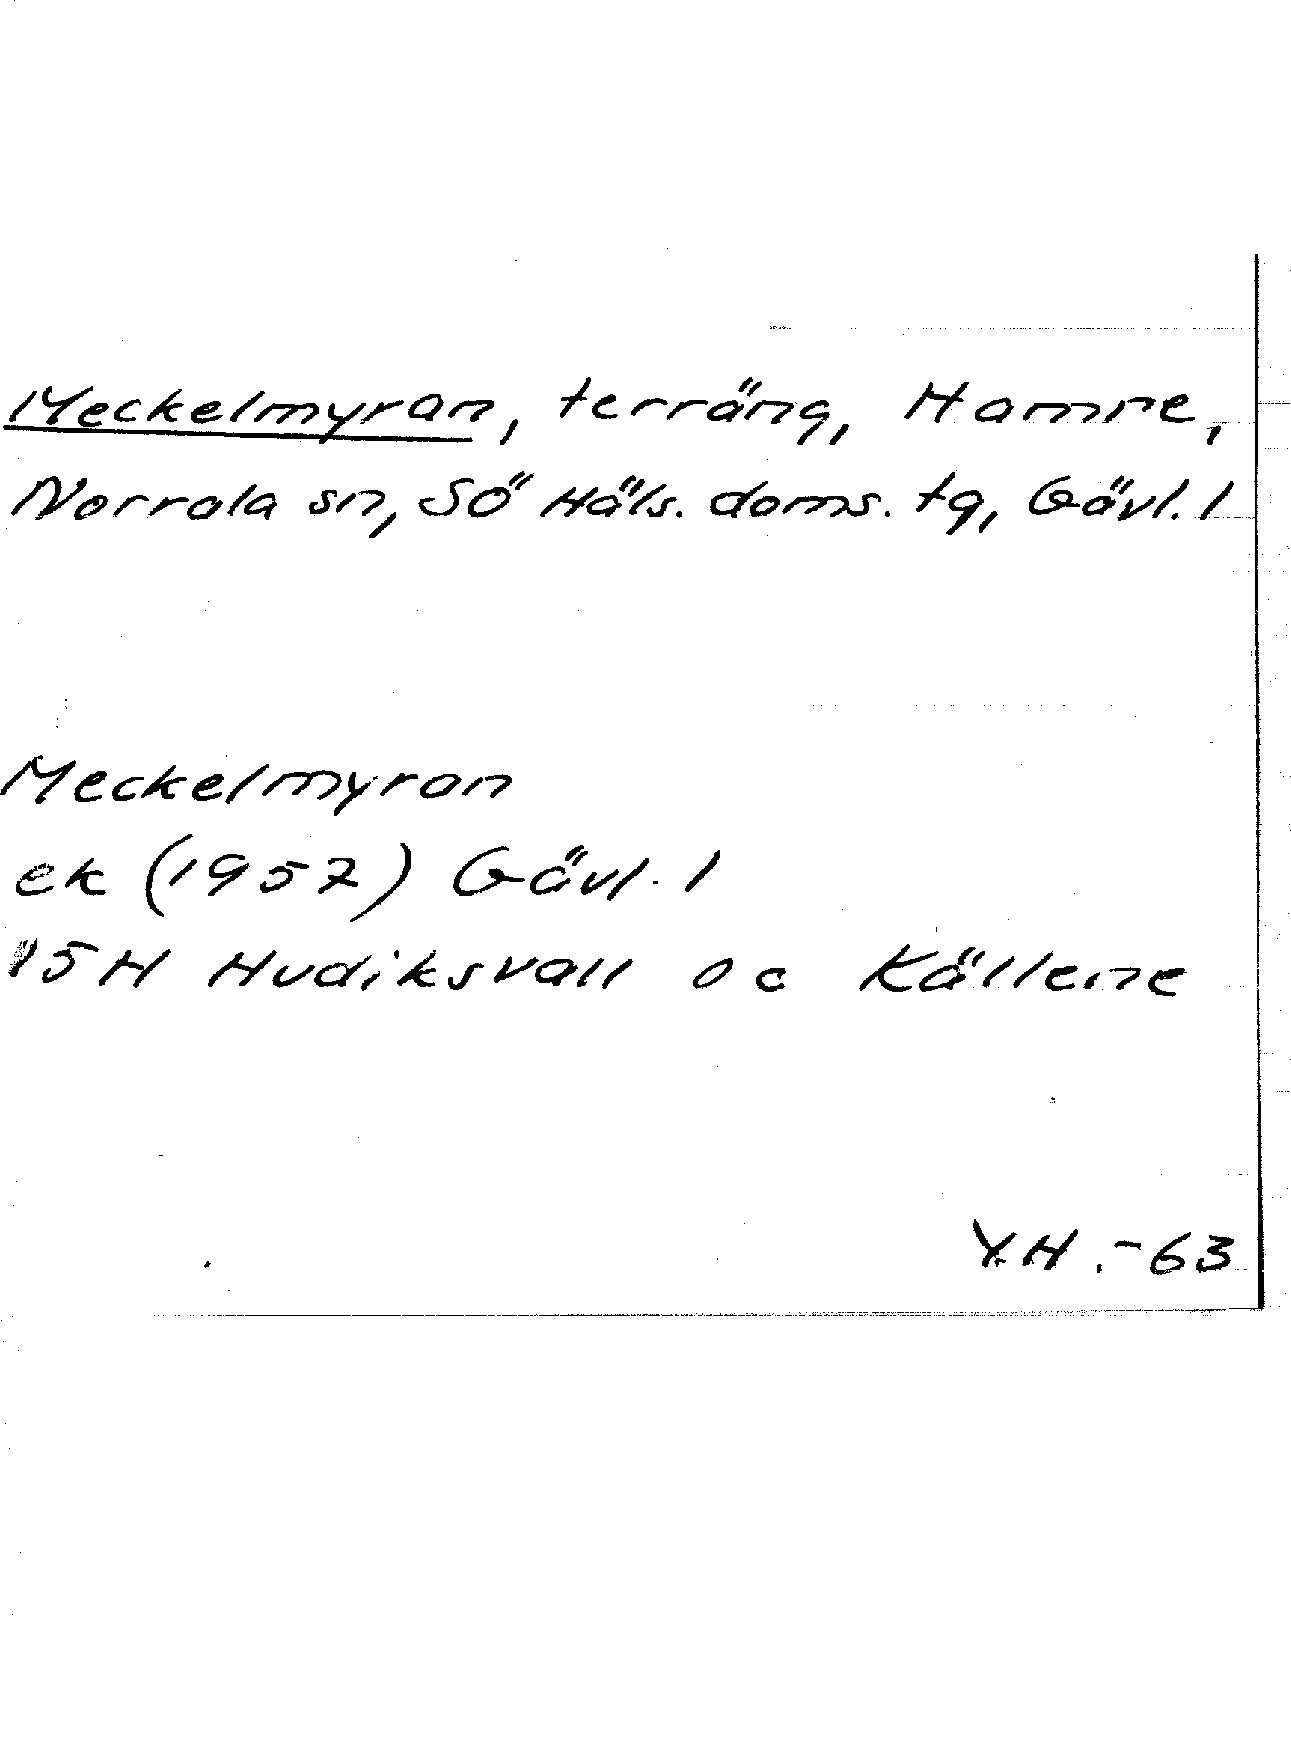 Meckelmyran, terräng, Hamre,
Norrala sn, SÖ Häls. doms. tg, Gävl. l
Meckelmyran
ek (1957) Gävl. l
15H Hudiksvall 0 c Källene
Y.H.-63